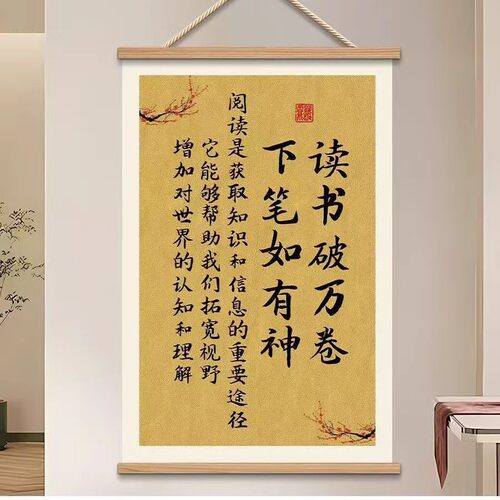 读书破万卷
下笔如有神
阅读是获取知识和信息的重要途径
它能够帮助我们拓宽视野
增加对世界的认知和理解